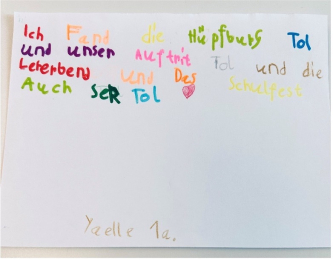 Ich Fand die Hüpfburg Tol
und unser Auftrit Tol und die
Lehrerbend und Des Schulfest
Auch SeR Tol
Yaelle 1a.